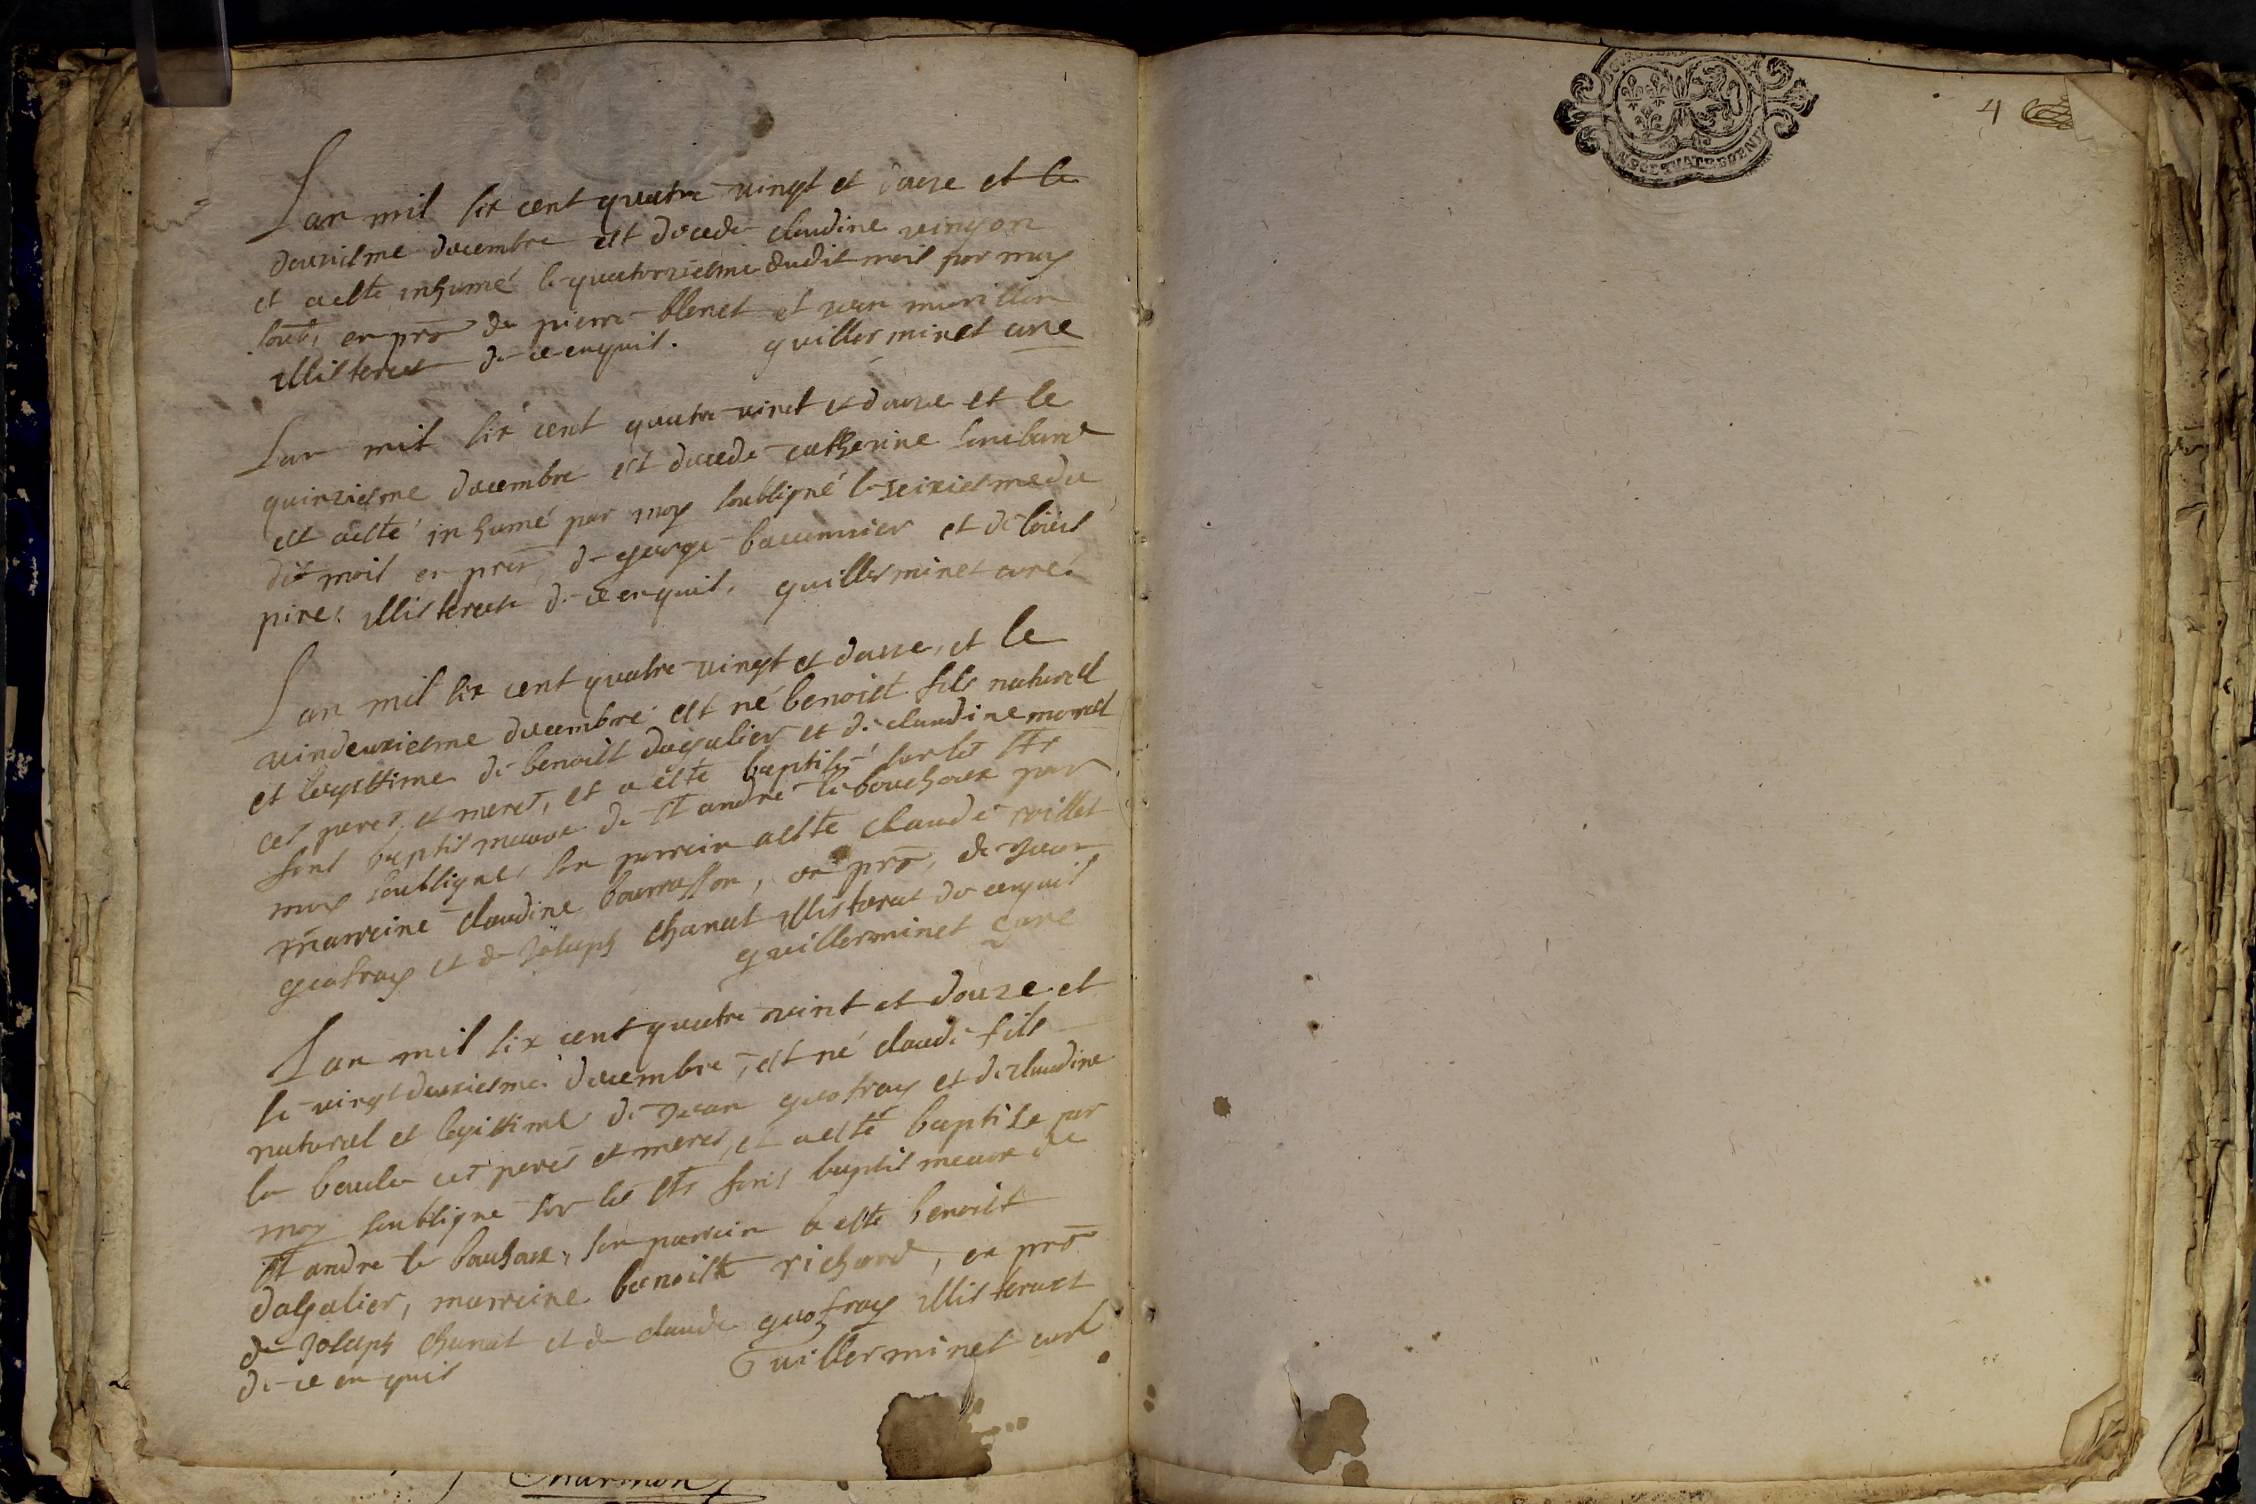 Lan mil six cent quatre vingt et douze et le
douziesme decembre est decede claudine vingon
et a esté inhumé le quatorziesme dudit mois par moy
soub. en prn de pierre blenet et
illisteres de ce enquis. guillerminet cure
Lan mil six cent quatre vint et douze et le
quinziesme decembre est decede catherine lombard
est aesté inhumé par moy soubsigné le seiziesme du
dit mois en prn de george baconnier et de louis
pine illisteres de ce enquis. guillerminet curé
Lan mil six cent quatre vingt et douze, et le
vindeuxiesme decembre est né benoist fils naturell
et legittime de benoist dagalier et de claudine morel
ces peres, et meres, et a esté baptisé sur les sts
fons baptismaux de st andré le bouchoux par
moy soubsigné, son parrain aesté claude
marreine claudine bourrasson, en prn, de jean
geofray et de Joseph chanat illisteres de cenquis
guillerminet curé
Lan mil six cent quatre vint et douze et
le vingtdeuxiesme decembre, est né claude fils
naturel et legittime de Jean geofray et de claudine
la baula ces peres et meres, et aesté baptise par
moy soubsigne sur les sts fons baptismaux de
st andre le bouchoux, son parrain a esté benoist
dagalier, marreine benoiste richard, en prn
de Joseph chanat et de claude geofray illisteres
de ce enquis Guillerminet curé
4
Charmon